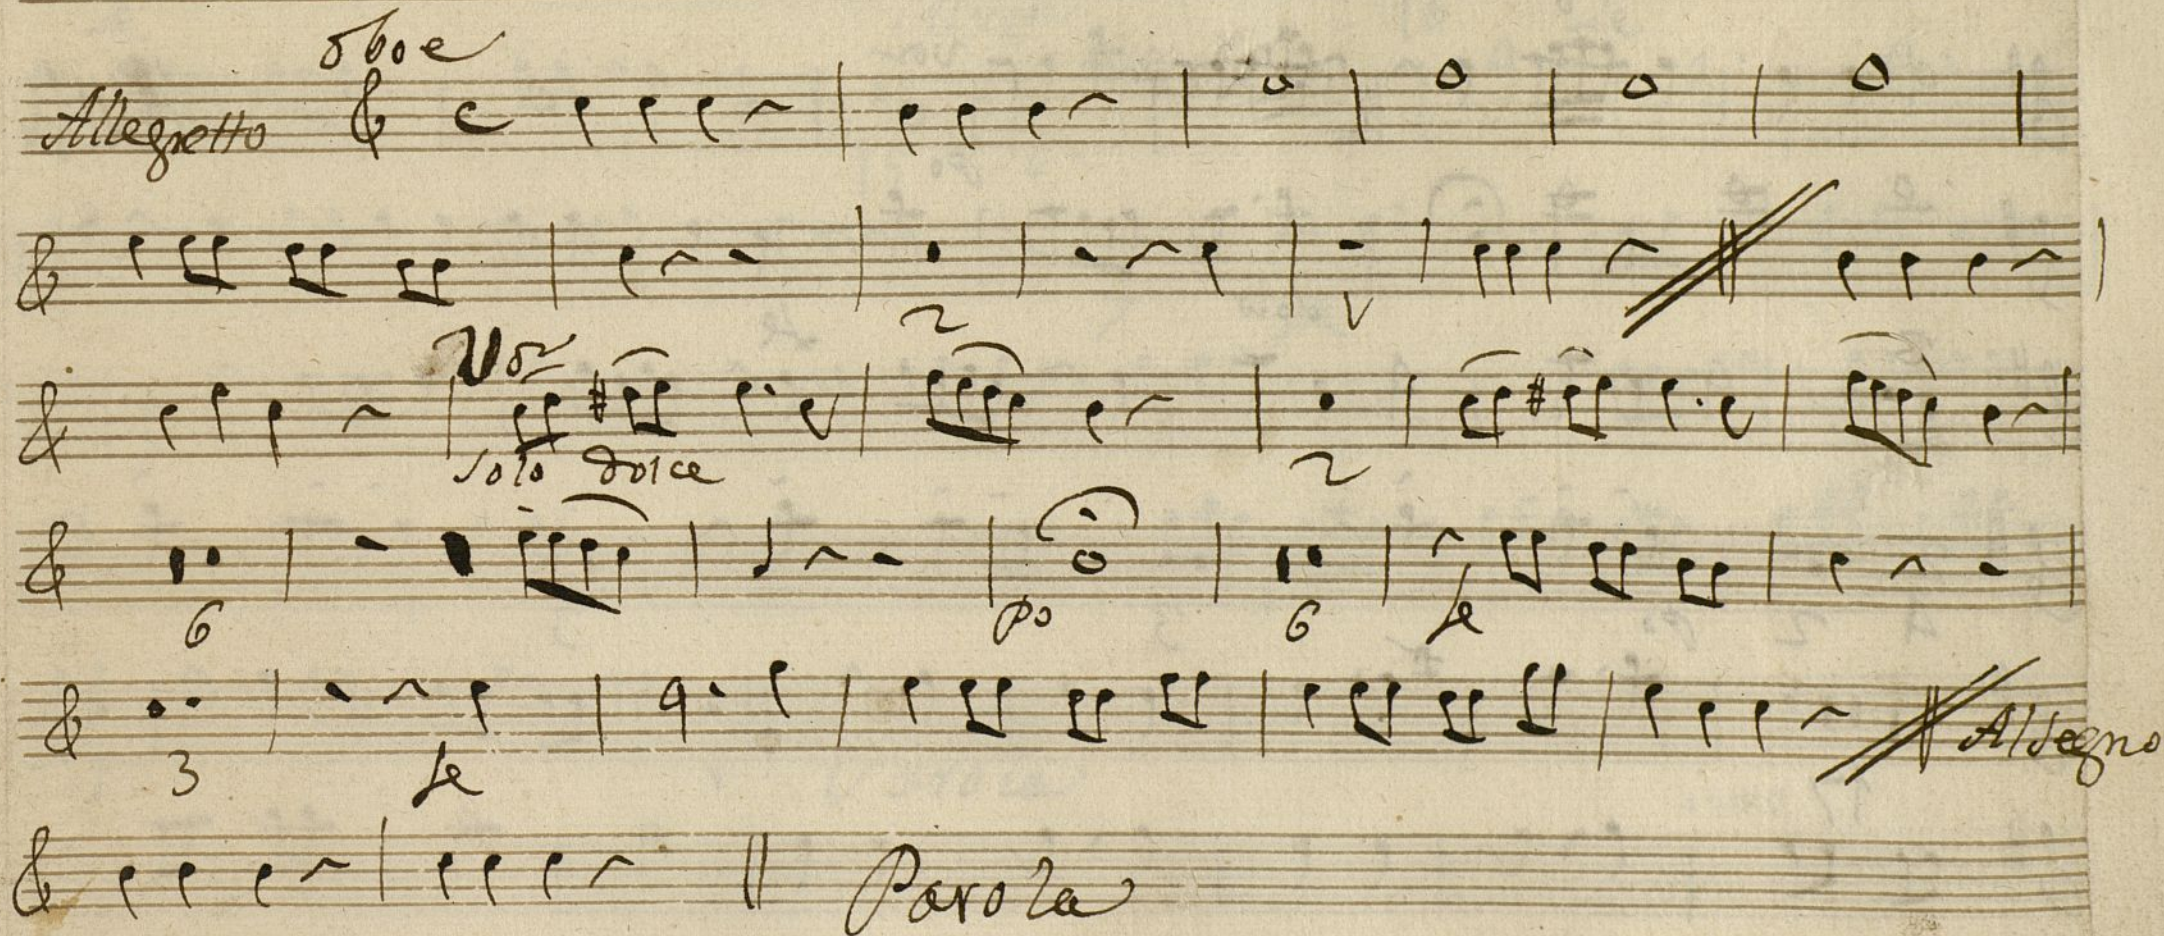 oboe
Allegretto
2
solo dolce
2
6 po 6 fe
3 fe
Al Segno
Parola